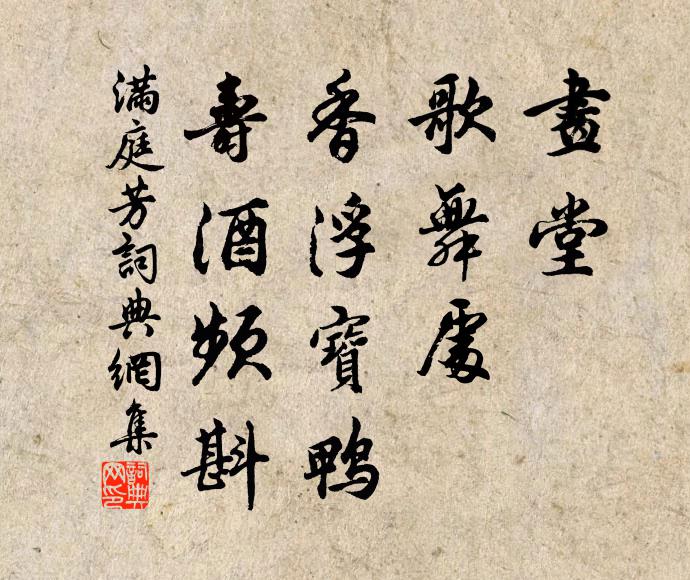 畫堂
歌舞處
香浮寶鴨
壽酒頻斟
滿庭芳詞典網集
詞典网印